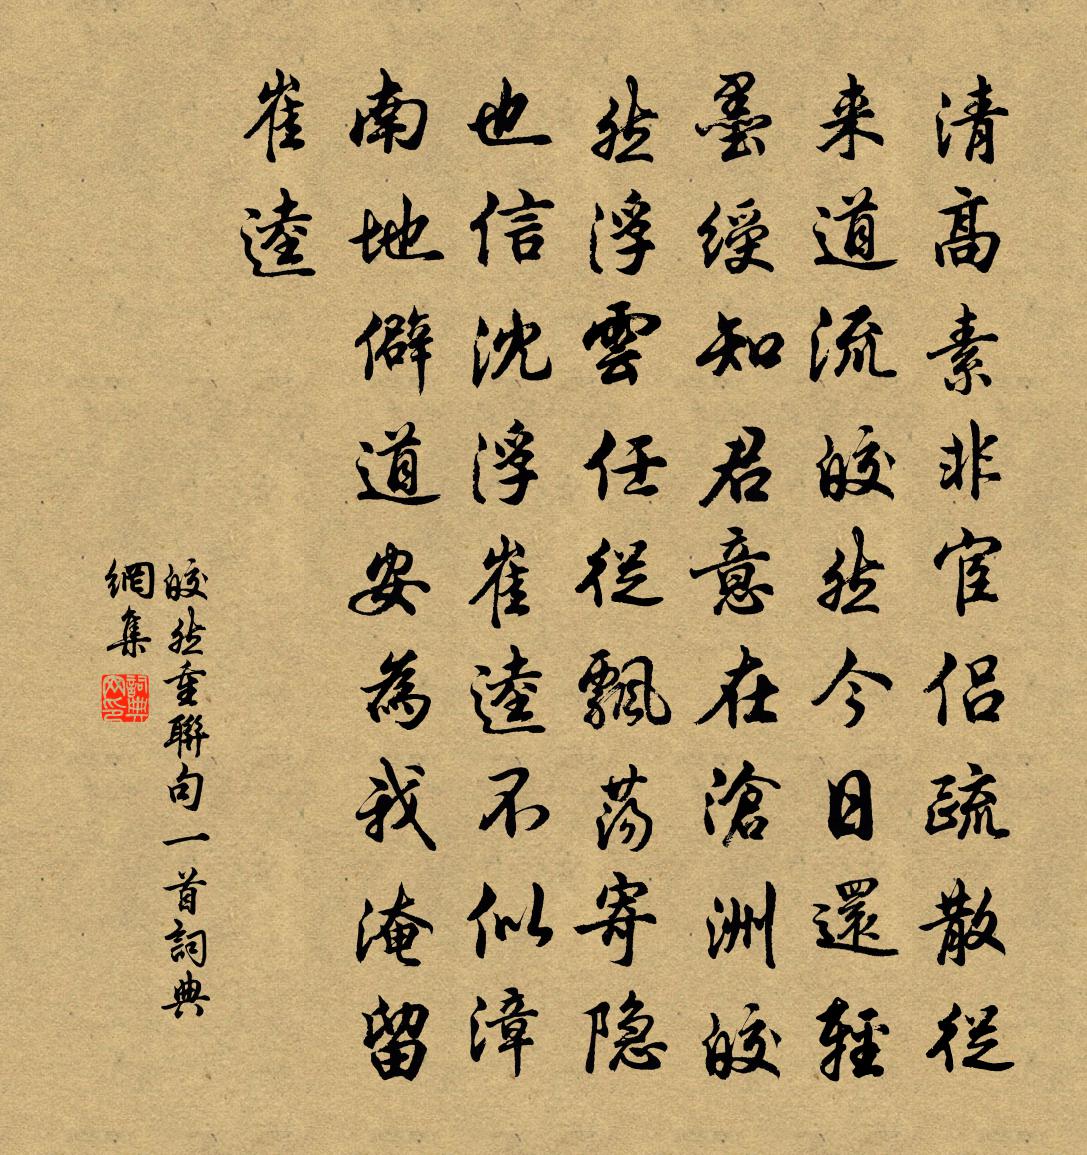 清高素非宦侣疏散從
来道流皎然今日還輕
墨綬知君意在滄洲皎
然浮雲任從飄荡寄隐
也信沈浮崔逵不似漳
南地僻道安為我淹留
崔逵
皎然重聯句一首詞典
網集
詞典
网印